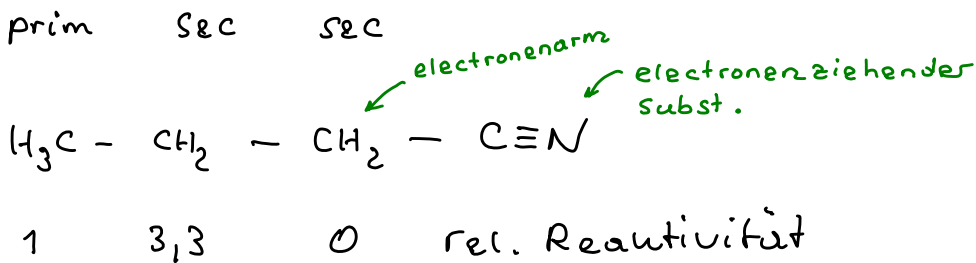 prim sec sec
electronenarm
electronenziehender
subst.
H₃C - CH₂ - CH₂ - C≡N
1 3,3 0 rel. Reaktivität